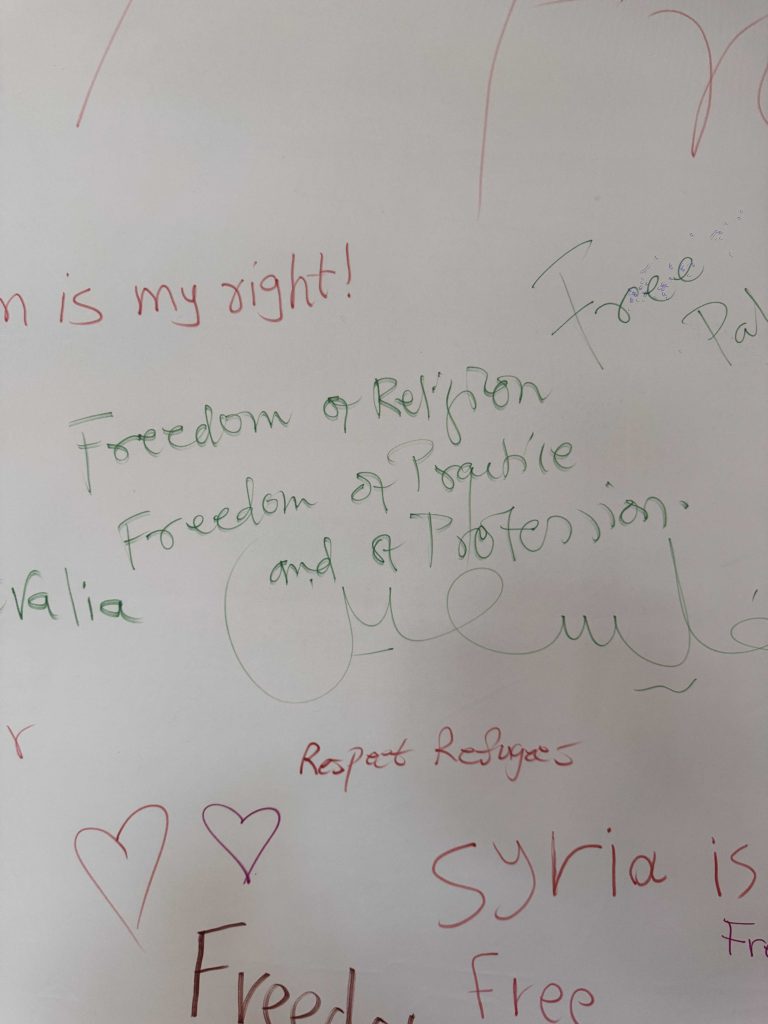 is my right!
Free
Freedom of Religion
Freedom of Practice
and of Profession.
valia
Respect Refugees
Syria is
free